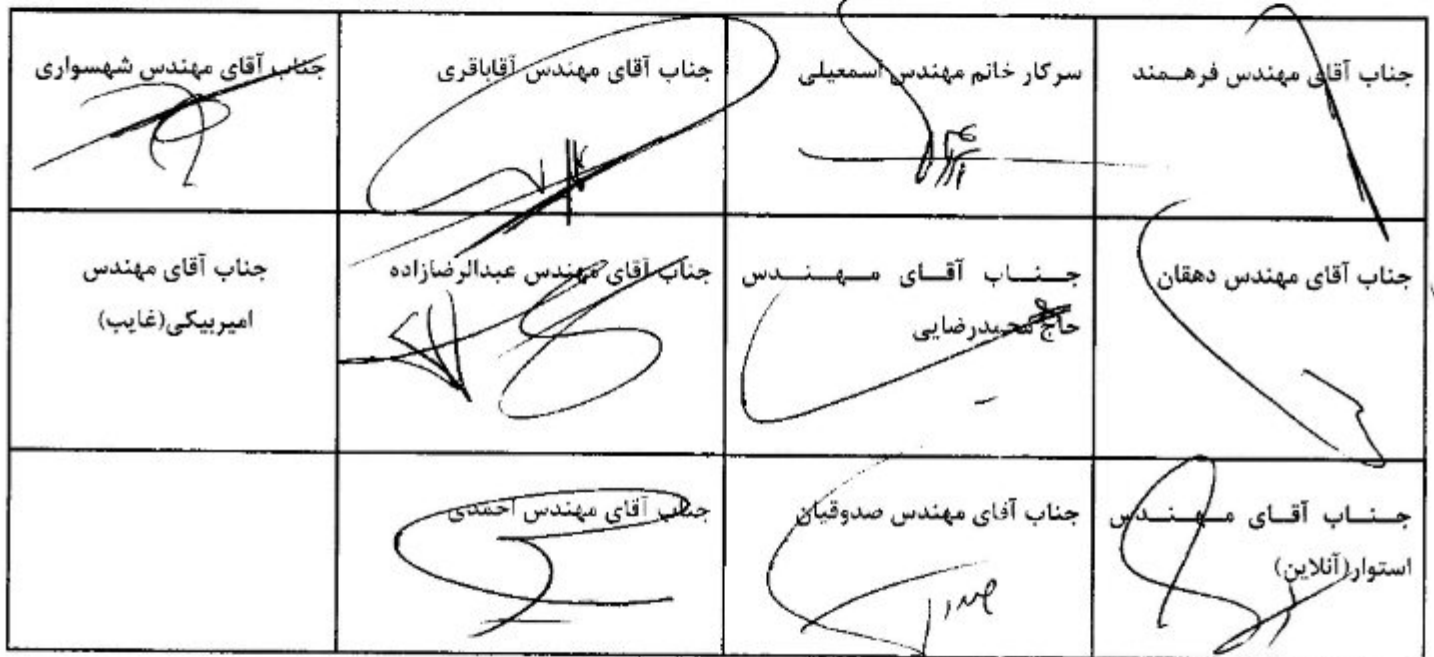 جناب آقای مهندس فرهمند
سرکار خانم مهندس اسمعیلی
جناب آقای مهندس آقاباقری
جناب آقای مهندس شهسواری
جناب آقای مهندس دهقان
جناب آقای مهندس
حاج محمدرضایی
جناب آقای مهندس عبدالرضازاده
جناب آقای مهندس
امیربیکی(غایب)
جناب آقای مهندس
استوار(آنلاین)
جناب آقای مهندس صدوقیان
جناب آقای مهندس احمدی